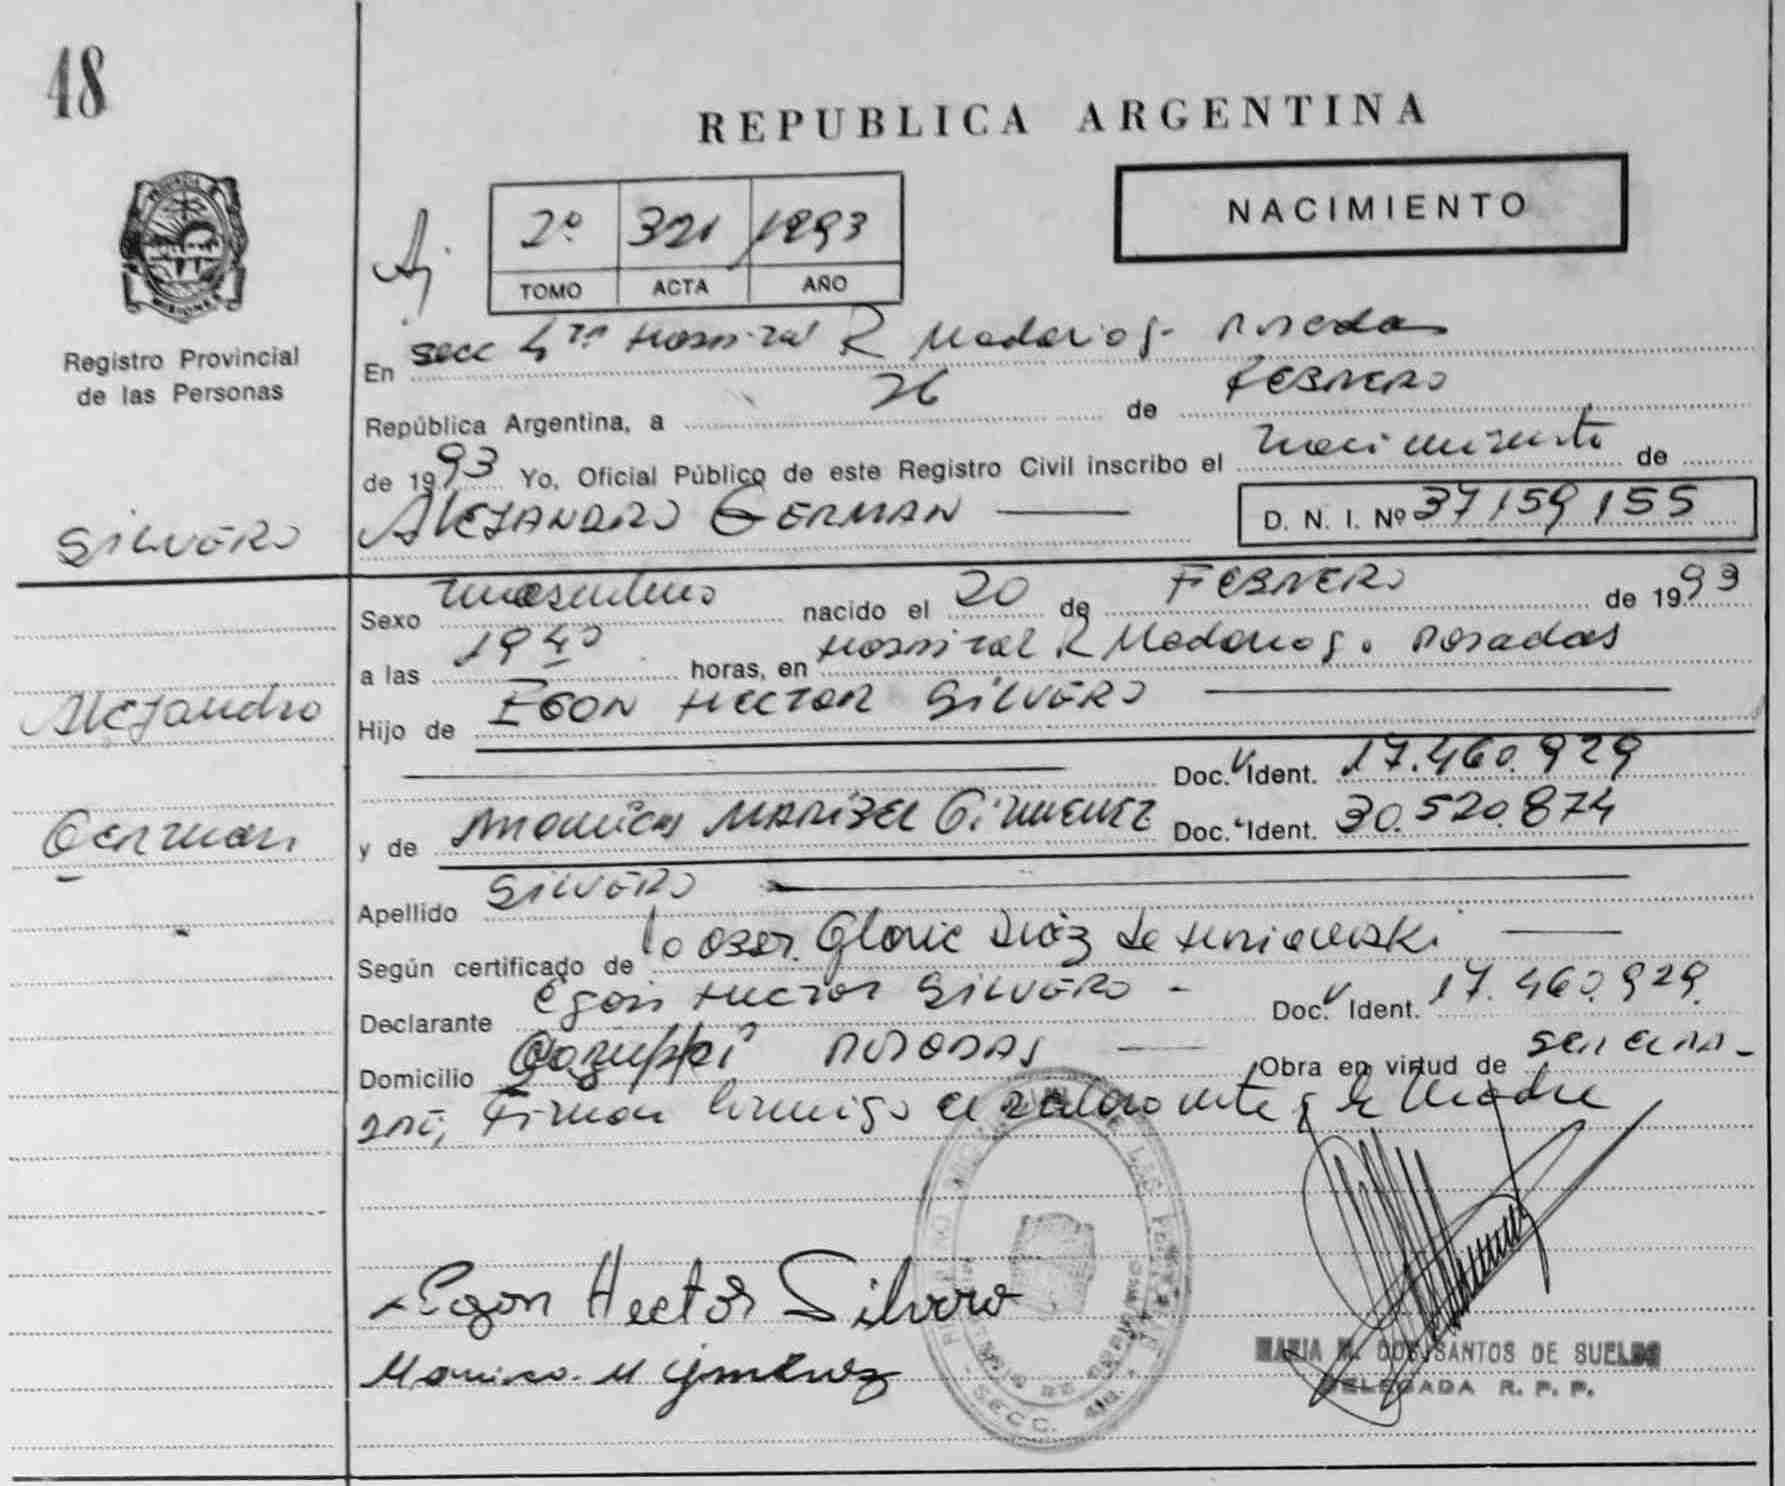 48
REPUBLICA ARGENTINA
NACIMIENTO
2º 321 1993
TOMO ACTA AÑO
PROVINCIA DE MISIONES
Registro Provincial
de las Personas
En Secc 4ta Hospital R Madariag. Posadas
República Argentina, a 26 de FEBRERO
de 1993 Yo, Oficial Público de este Registro Civil inscribo el nacimiento de
SILVERO
ALEJANDRO GERMAN D. N. I. Nº 37159155
Sexo masculino nacido el 20 de FEBRERO de 1993
a las 19 40 horas, en Hospital R Madariag. Posadas
Alejandro
Hijo de EGON HECTOR SILVERO
Doc. Ident. 17.460.929
German
y de MARISEL GIMENEZ Doc. Ident. 30.520.874
Apellido SILVERO
Según certificado de la Obst. Gloria Diaz de
Declarante Egon Hector SILVERO - Doc. Ident. 17.460.929.
Domicilio POSADAS Obra en virtud de
Firman conmigo el declarante y la Madre
Egon Hector Silvero
M Gimenez
MARIA M. DOS SANTOS DE SUELDO
DELEGADA R. P. P.
SECC. 4ta.